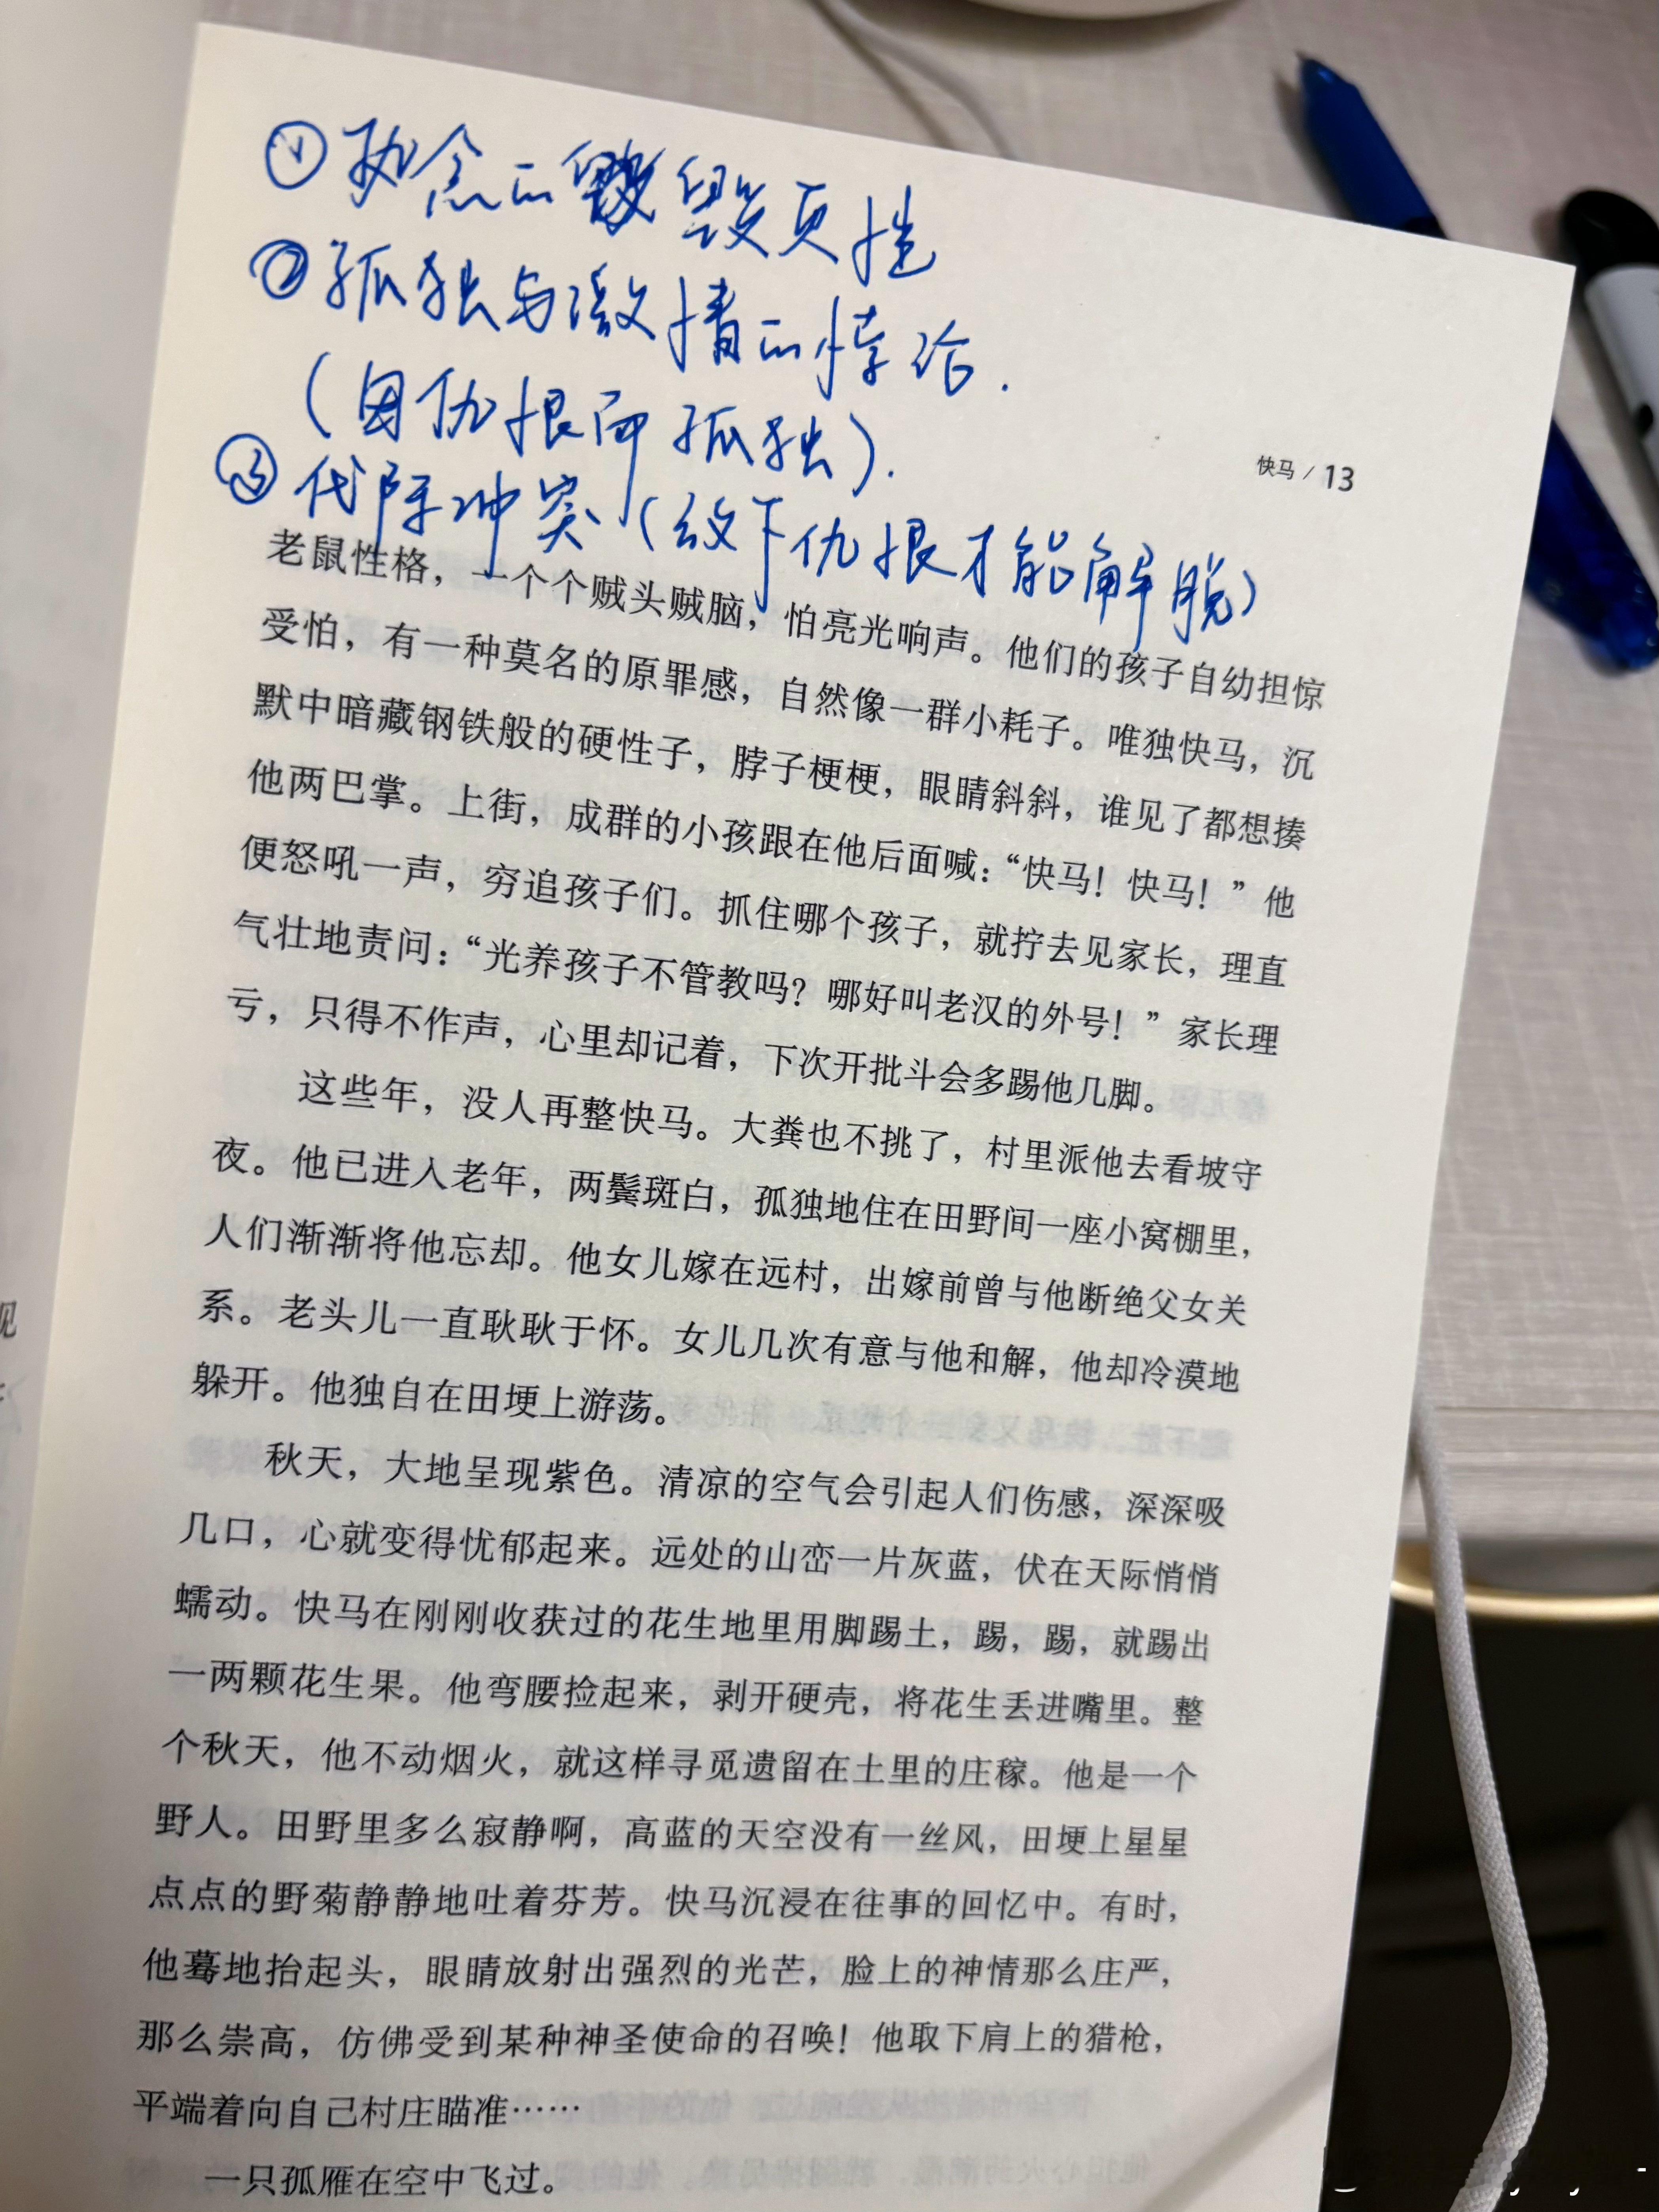 ① 执念的毁页挫
② 孤独与激情的悖论.
(因仇恨而孤独).
③ 代际冲突(放下仇恨才能解脱)
快马 / 13
老鼠性格，一个个贼头贼脑，怕亮光响声。他们的孩子自幼担惊
受怕，有一种莫名的原罪感，自然像一群小耗子。唯独快马，沉
默中暗藏钢铁般的硬性子，脖子梗梗，眼睛斜斜，谁见了都想揍
他两巴掌。上街，成群的小孩跟在他后面喊：“快马！快马！”他
便怒吼一声，穷追孩子们。抓住哪个孩子，就拧去见家长，理直
气壮地责问：“光养孩子不管教吗？哪好叫老汉的外号！”家长理
亏，只得不作声，心里却记着，下次开批斗会多踢他几脚。
这些年，没人再整快马。大粪也不挑了，村里派他去看坡守
夜。他已进入老年，两鬓斑白，孤独地住在田野间一座小窝棚里，
人们渐渐将他忘却。他女儿嫁在远村，出嫁前曾与他断绝父女关
系。老头儿一直耿耿于怀。女儿几次有意与他和解，他却冷漠地
躲开。他独自在田埂上游荡。
秋天，大地呈现紫色。清凉的空气会引起人们伤感，深深吸
几口，心就变得忧郁起来。远处的山峦一片灰蓝，伏在天际悄悄
蠕动。快马在刚刚收获过的花生地里用脚踢土，踢，踢，就踢出
一两颗花生果。他弯腰捡起来，剥开硬壳，将花生丢进嘴里。整
个秋天，他不动烟火，就这样寻觅遗留在土里的庄稼。他是一个
野人。田野里多么寂静啊，高蓝的天空没有一丝风，田埂上星星
点点的野菊静静地吐着芬芳。快马沉浸在往事的回忆中。有时，
他蓦地抬起头，眼睛放射出强烈的光芒，脸上的神情那么庄严，
那么崇高，仿佛受到某种神圣使命的召唤！他取下肩上的猎枪，
平端着向自己村庄瞄准……
一只孤雁在空中飞过。